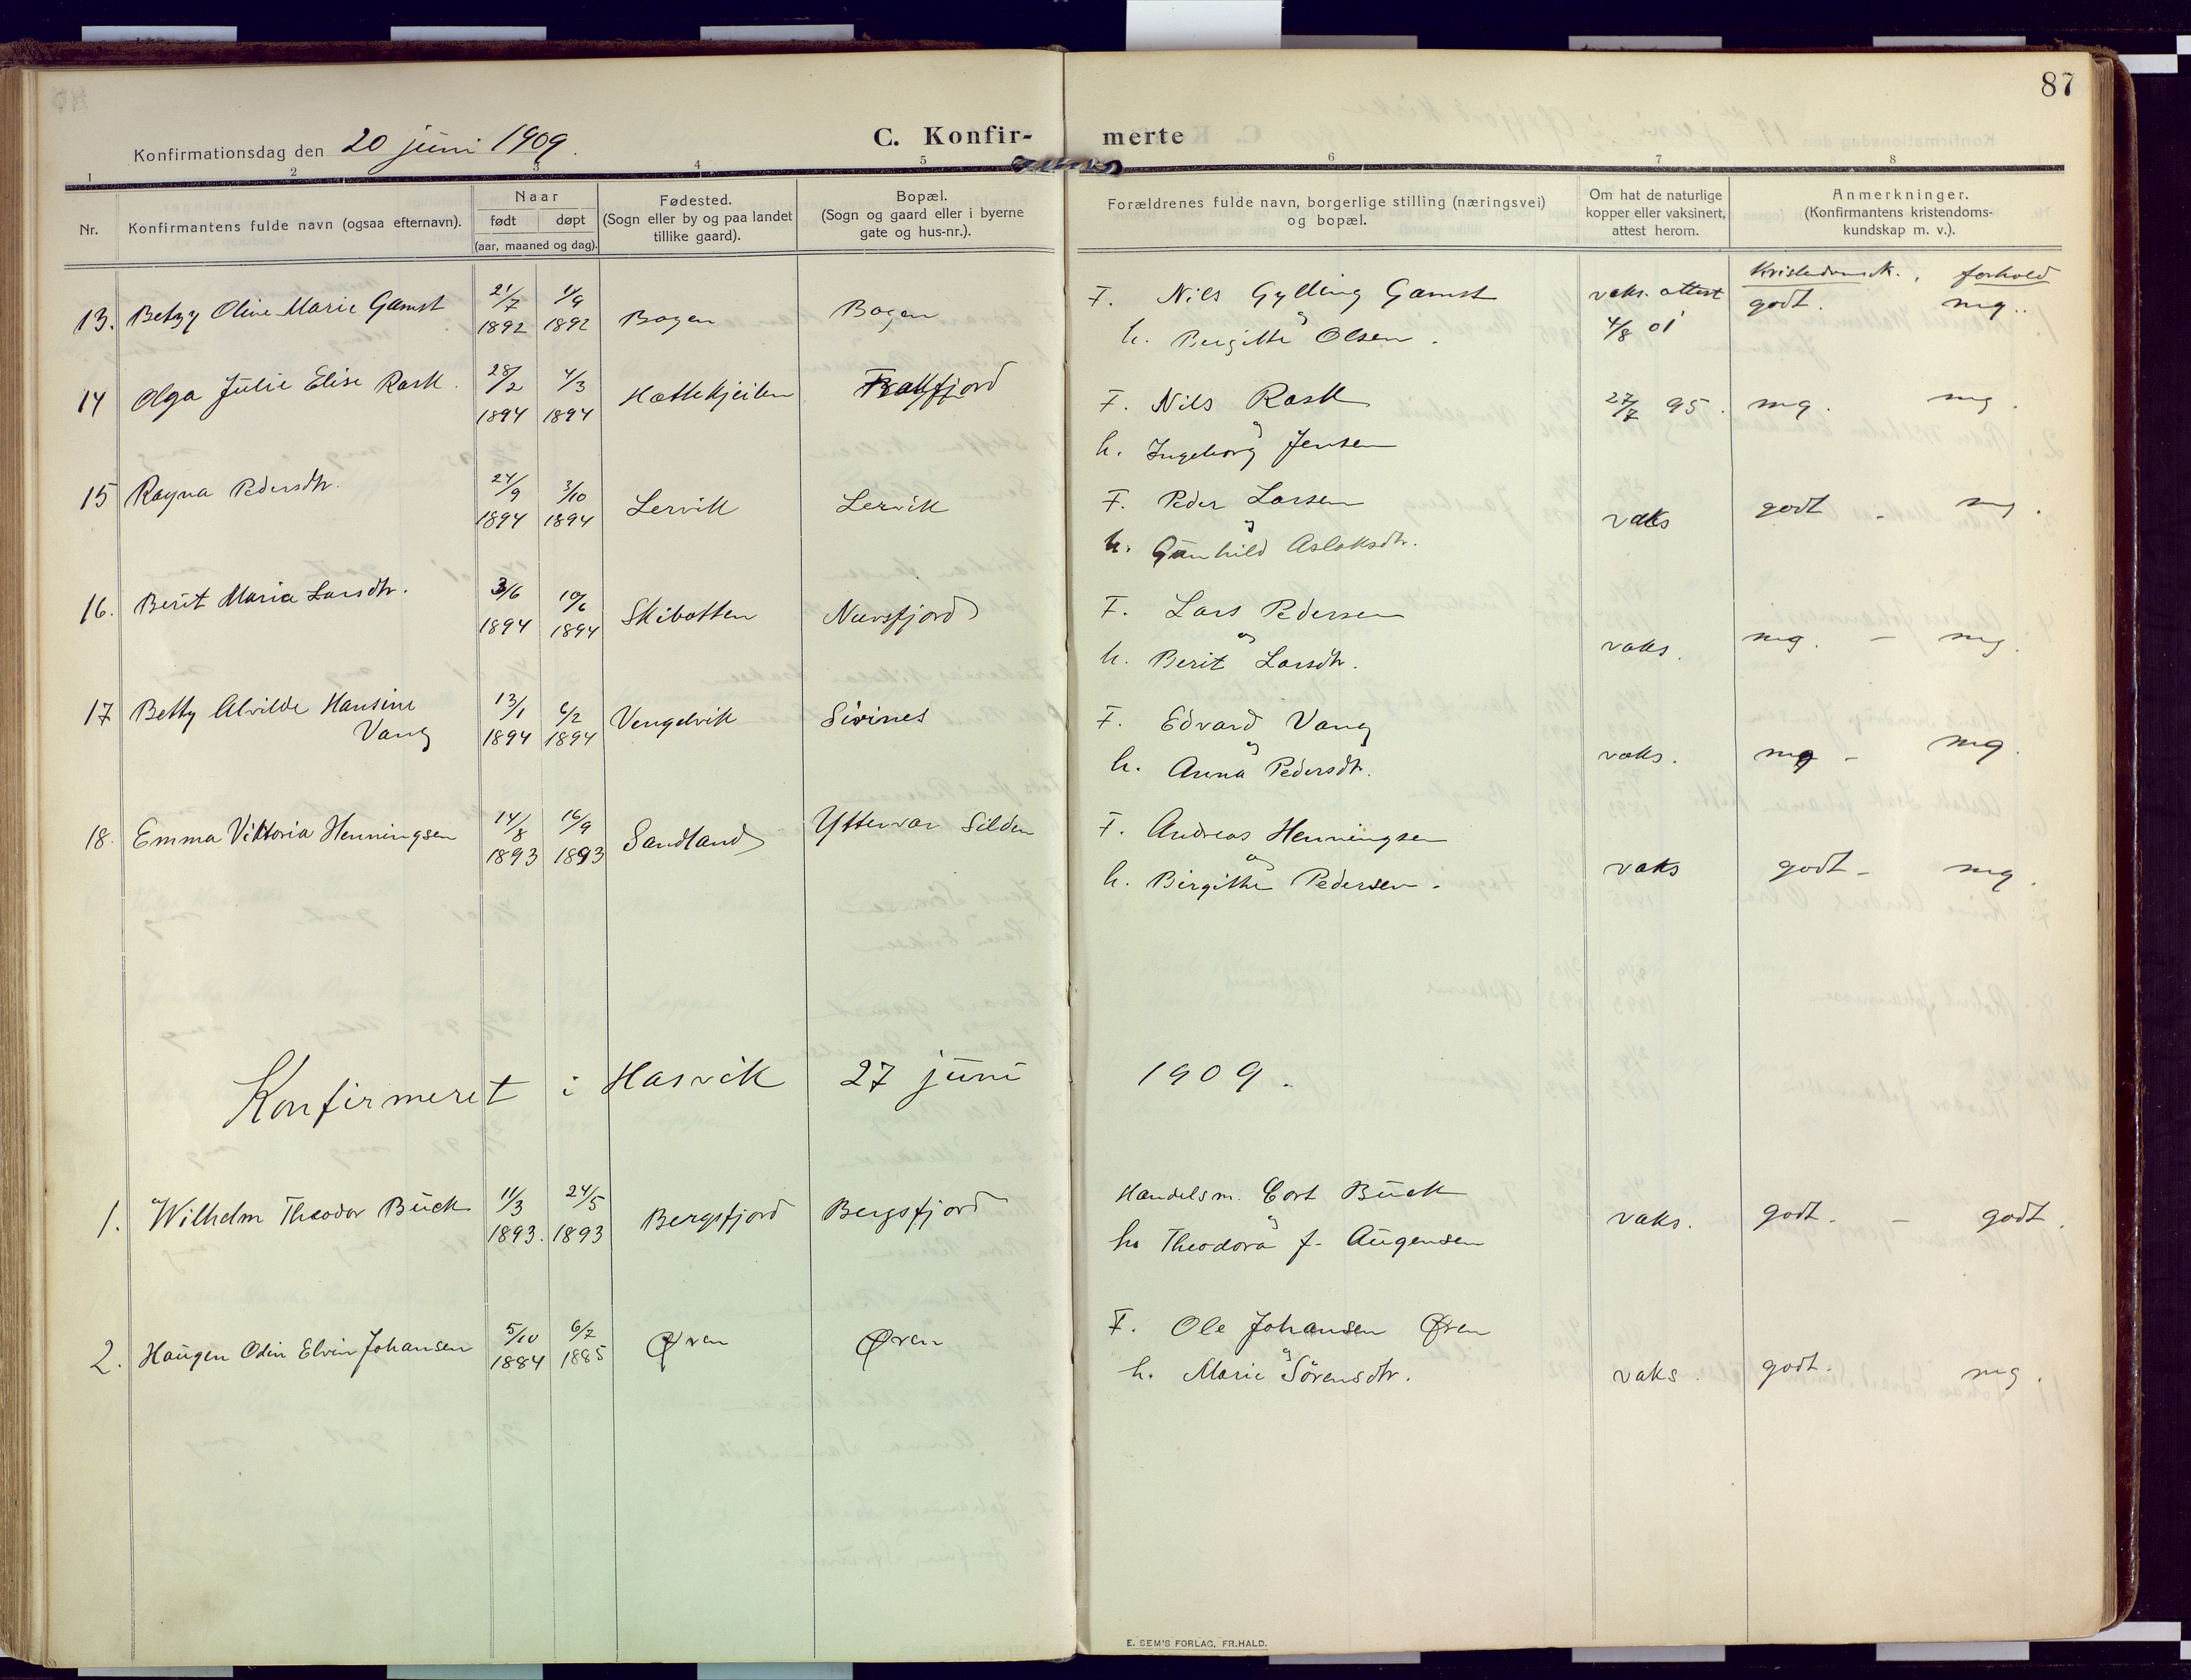 87
Konfirmationsdag den 20 juni 1909.
C. Konfir- merte
1 2 3 4 5 6 7 8
Nr.
Konfirmantens fulde navn (ogsaa efternavn).
Naar
født døpt
(aar, maaned og dag).
Fødested.
(Sogn eller by og paa landet
tillike gaard).
Bopæl.
(Sogn og gaard eller i byerne
gate og hus-nr.).
Forældrenes fulde navn, borgerlige stilling (næringsvei)
og bopæl.
Om hat de naturlige
kopper eller vaksinert,
attest herom.
Anmerkninger.
(Konfirmantens kristendoms-
kundskap m. v.).
Kristendomsk. , forhold
13. Betzy Oline Marie Gamst 21/7 1892 1892 Bogen Bogen F. Nils Gylling Gamst
og
h. Bergitte Olsen . vaks. attest 4/8 01 godt. mg..
14 Olga Julie Elise Rask. 28/2 1894 4/3 1894 Hattekjeilen Frakfjord F. Nils Rask
og
h. Ingeborg Jensen 27/7 95. mg. mg.
15 Ragna Pedersdtr. 24/9 1894 3/10 1894 Lervik Lervik F. Peder Larsen
og
h. Gunhild Aslaksdtr. vaks godt - mg.
16. Berit Maria Larsdtr. 3/6 1894 10/6 1894 Skibotten Nuvsfjord F. Lars Pedersen
og
h. Berit Larsdtr. vaks. mg. - mg.
17 Betty Alvilde Hansine
Vang 13/1 1894 6/2 1894 Vengelvik Sivines F. Edvard Vang
og
h. Anna Pedersdtr. vaks. mg - mg.
18. Emma Viktoria Henningsen 14/8 1893 16/9 1893 Sandland Yttervær Silden F. Andreas Henningsen
og
h. Birgitte Pedersen. vaks godt - mg.
Konfirmeret i Hasvik 27 juni 1909.
1. Wilhelm Theodor Buck 11/3 1893. 24/5 1893 Bergsfjord Bergsfjord Handelsm. Cort Buck
og
h. Theodora f. Augensen vaks. godt. - godt.
2. Haugen Odin Elvin Johansen 5/10 1884 6/7 1885 Øren Øren F. Ole Johansen Øren
og
h. Marie Sörensdtr. vaks godt. mg.
E. SEM'S FORLAG, FR.HALD.